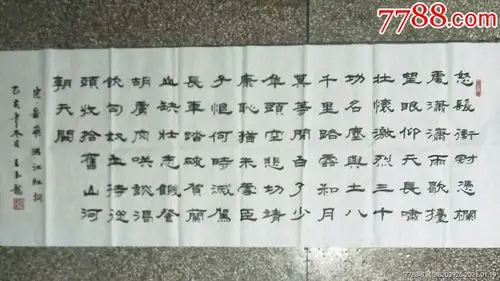 7788.com
怒髮衝冠憑欄
處瀟瀟雨歇擡
望眼仰天長嘯
壯懷激烈三十
功名塵與土八
千里路雲和月
莫等閒白了少
年頭空悲切靖
康恥猶未雪臣
子恨何時滅駕
長車踏破賀蘭
山缺壯志飢餐
胡虜肉笑談渴
飲匈奴血待從
頭收拾舊山河
朝天闕
宋岳飛滿江紅詞
亥年冬月